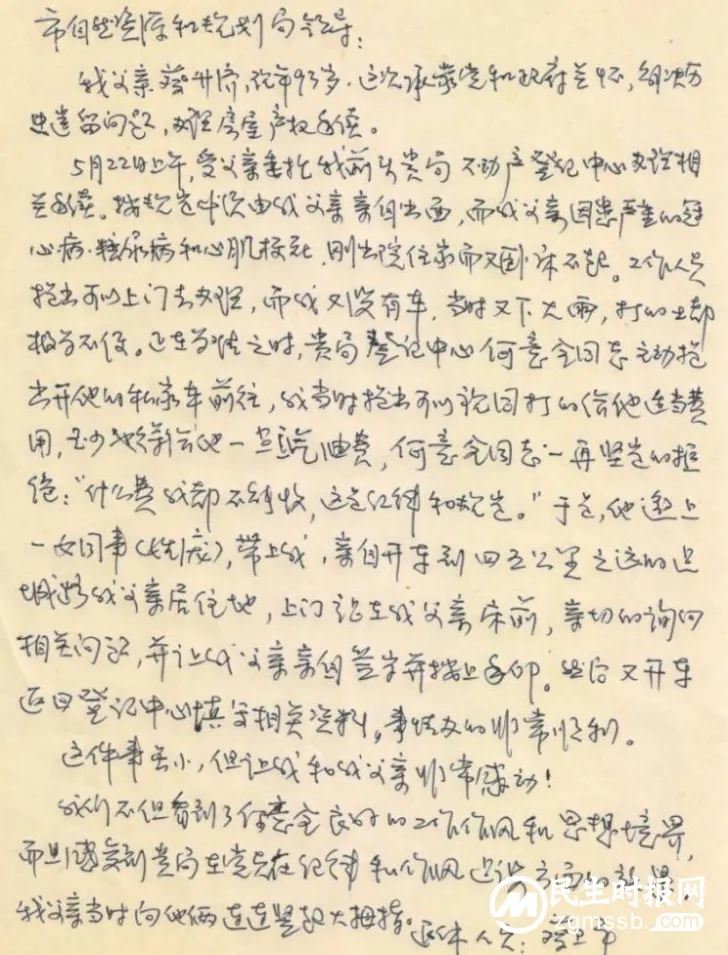 市自然资源和规划局领导：
我父亲蔡升济，现年93岁。这次承蒙党和政府关怀，解决历
史遗留问题，办理房屋产权手续。
5月22日上午，受父亲委托我前头贵局不动产登记中心办理相
关手续。按规定必须由我父亲亲自出面，而我父亲因患严重的冠
心病、糖尿病和心肌梗死，刚出院住家而又卧床不起。工作人员
提出可以上门去办理，而我又没有车，当时又下大雨，打的士都
极为不便。正在为难之时，贵局登记中心何意全同志主动提
出开他的私家车前往，我当时提出可以视同打的给他适当费
用，至少也得给他一点汽油费，何意全同志一再坚定的拒
绝：“什么费我都不能收，这是纪律和规定。”于是，他邀上
一女同事（姓庞），带上我，亲自开车到四五公里之远的
我父亲居住地，上门站在我父亲床前，亲切的询问
相关问题，并让我父亲亲自签字并按上手印。然后又开车
返回登记中心填写相关资料，事情办的非常顺利。
这件事虽小，但让我和我父亲非常感动！
我们不但看到了何意全良好的工作作风和思想境界，
而且感受到贵局在党员在纪律和作风建设方面的效果，
我父亲当时向他俩连连竖起大拇指。
民生时报网
zgmssb.com